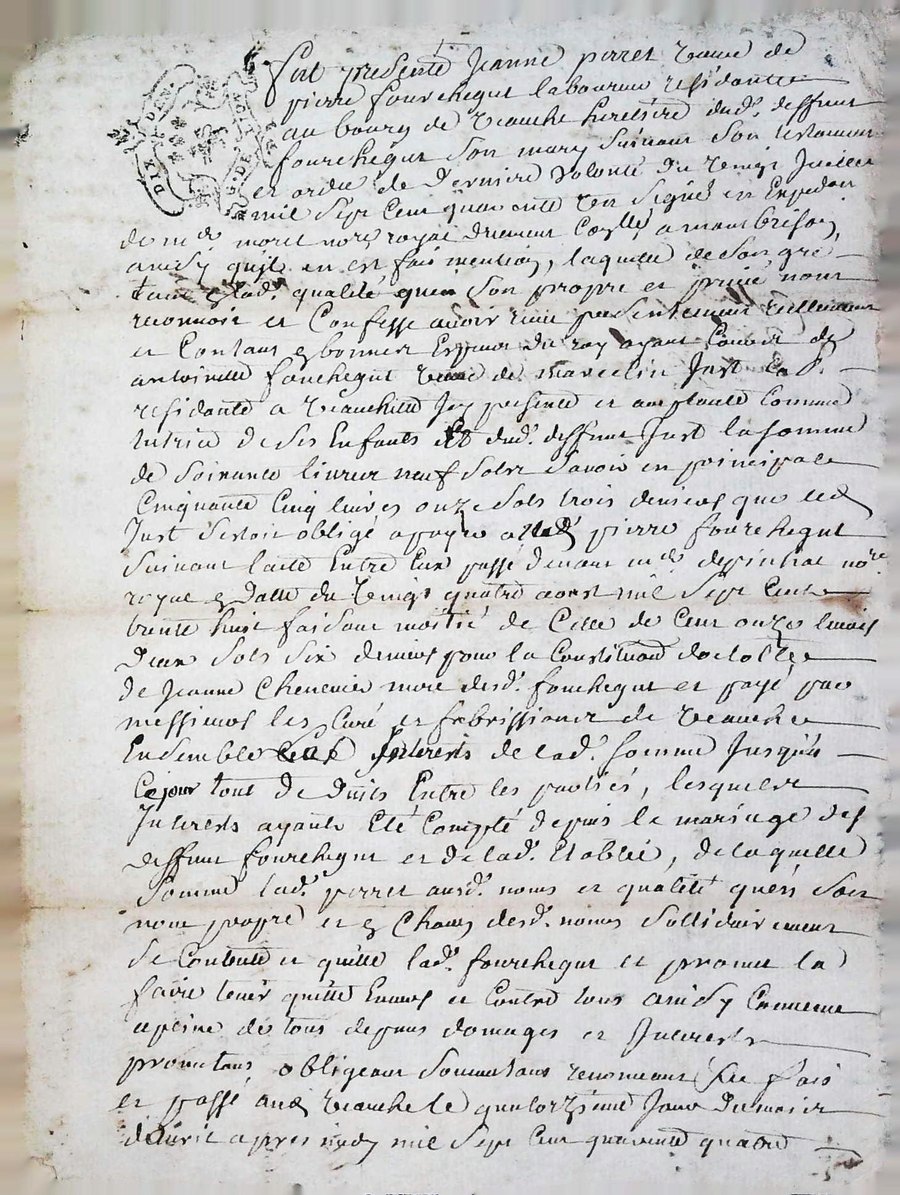 DIX DEN
G. DE
Fut presente Jeanne pirret veuve de
pierre fourchegut laboureur residante
au bourg de veauche heretiere dud. deffunt
fourchegut son mary suivant son testament
et ordre de derniere volonté du vingt Juillet
mil sept cent quarente un signé en Expedion
de me moret nore royal a montbrison,
ainsy quil en est fait mention, laquelle de son gré
tant lad. qualité quen son propre et privé nom
reconnoit et Confesse avoir reçu presentement reellement
et Contant bonnes Especes du roy ayant Cours de
antoinette fourchegut veuve de marcelin Just
residante a veauchette Icy presente et acceptante Comme
tutrice de ses Enfants et dud. deffunt Just la somme
de soixante livres neuf sols savoir en principal
Cinquante Cinq livres onze sols trois deniers que led
Just sestoit obligé a payer aud pierre fourchegut
suivant lacte Entre Eux passé devant me depinhac nore
royal datte du vingt quatre aoust mil sept Cent
trente huit faisant moitié de Celle de Cent onze livres
deux sols six deniers pour la Constitution dotalle
de Jeanne Chenevier mere desd. fourchegut et payé par
messieurs les Curé et fabrissiens de veauche
Ensemble les Interests de lad. somme Jusqua
Cejour tout de duits Entre les parties, lesquels
Interests ayants Eté Compté depuis le mariage des
deffunt fourchegut et de lad. Etablie, de laquelle
somme lad. pirret ausd. noms et qualité quen son
nom propre et Chacun desd. noms sollidairement
se Contente et quitte lad. fourchegut et promet la
faire tenir quitte Envers et Contre tous ainsy Comme
a peine de tous depens domages et Interests
promettant obligeant soumettant renonceant fait
et passé aud veauche le quatorzieme Jour du mois
davril apres midy mil sept Cent quarente quatre